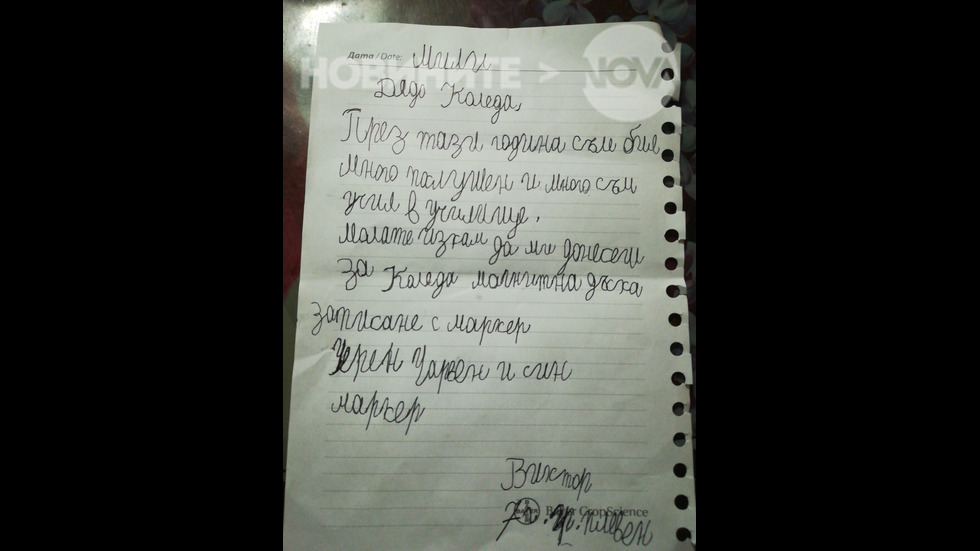 Дата / Date: Мили
НОВИНИТЕ > NOVA
Дядо Коледа,
През тази година съм бил
много послушен и много съм
учил в училище.
молате искам да ми донесеш
за Коледа магнитна дъска
за писане с маркер
Черен Чарвен и син
маркер
Виктор
Bayer CropScience
7г. гр. плевен